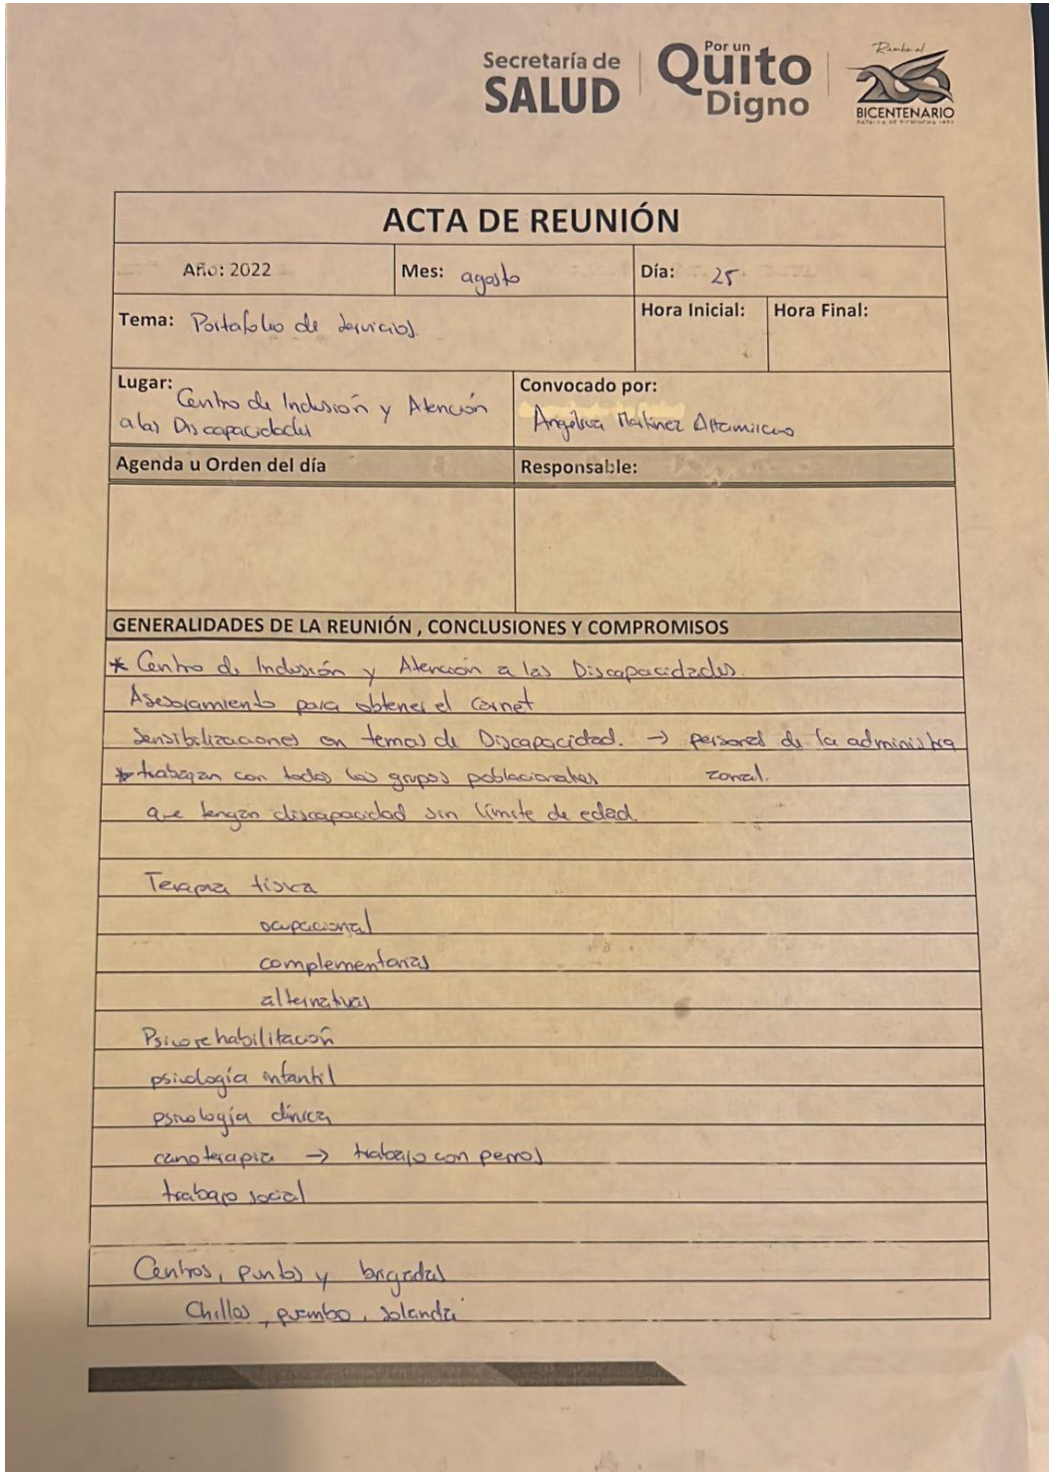 Secretaría de
SALUD
Por un
Quito
Digno
Rumbo al
200
BICENTENARIO
BATALLA DE PICHINCHA 1822
ACTA DE REUNIÓN
Año: 2022
Mes: agosto
Día: 25
Tema: Portafolio de servicios.
Hora Inicial:
Hora Final:
Lugar: Centro de Inclusión y Atención
a las Discapacidades
Convocado por:
Angélica Martinez Altamirano
Agenda u Orden del día
Responsable:
GENERALIDADES DE LA REUNIÓN , CONCLUSIONES Y COMPROMISOS
* Centro de Inclusión y Atención a las Discapacidades.
Asesoramiento para obtener el carnet
Sensibilizaciones en temas de Discapacidad. → personal de la administra
* trabajan con todos los grupos poblacionales zonal.
que tengan discapacidad sin límite de edad.
Terapia física
ocupacional
complementarias
alternativas
Psicorehabilitación
psicología infantil
psicología clínica
canoterapia → trabajo con perros
trabajo social
Centros, puntos y brigadas
Chillos, puembo, solanda